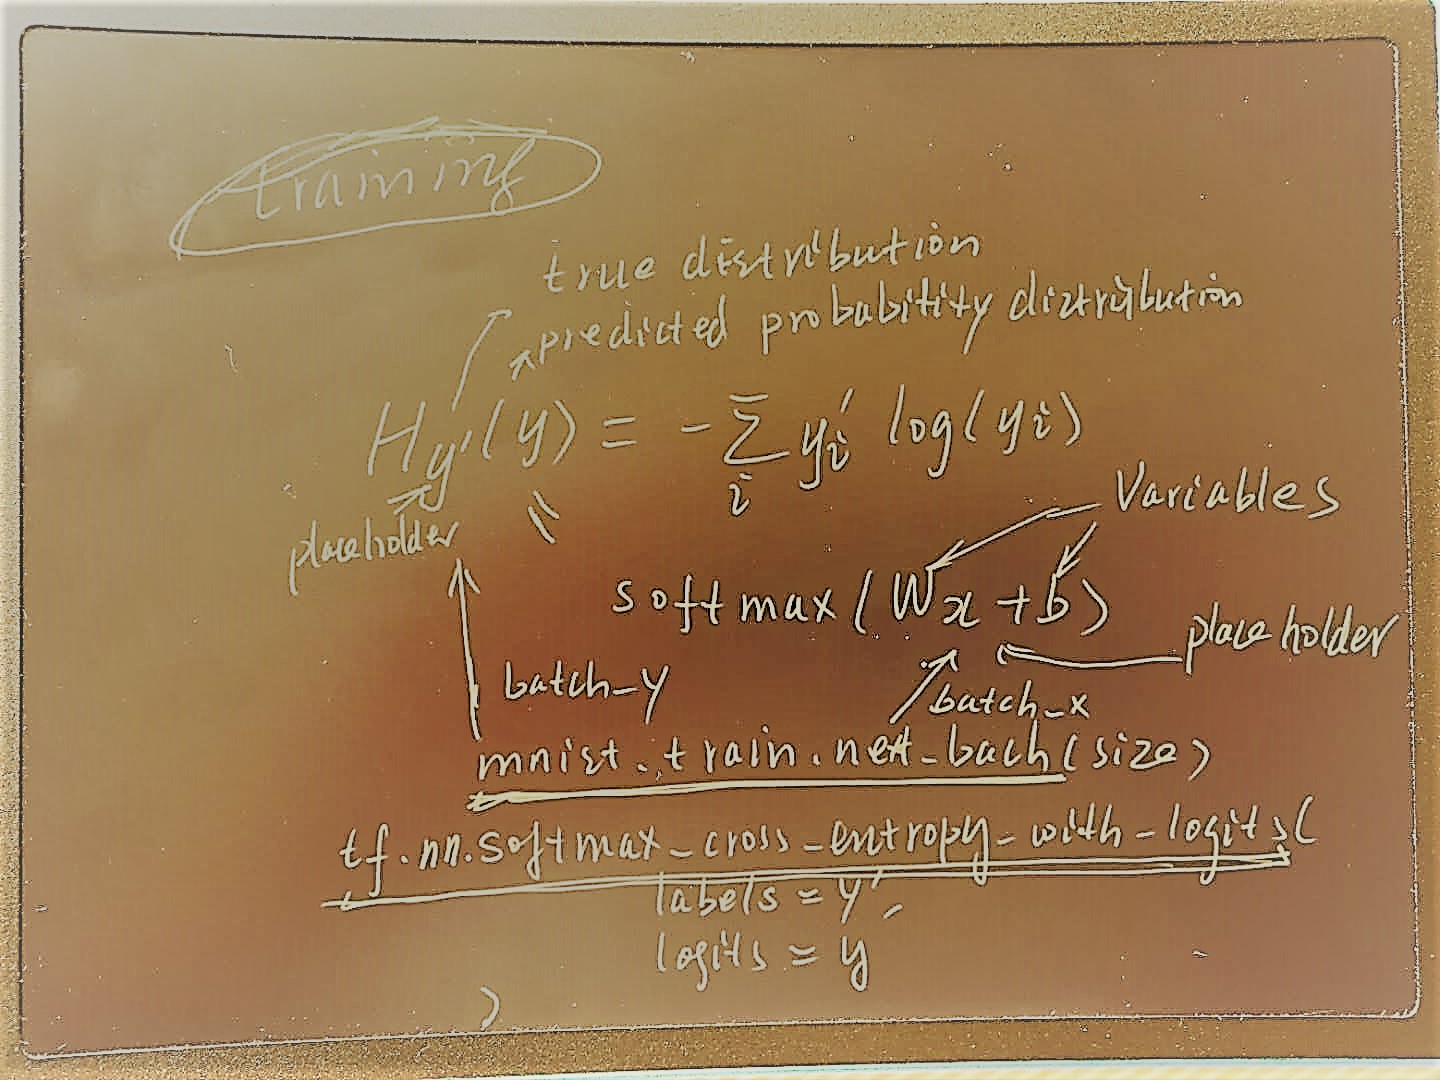 training
true distribution
predicted probability distribution
Hy'(y) = - Σ yi' log(yi)
i
placeholder
Variables
softmax(Wx + b)
place holder
batch_y
batch_x
mnist.train.next_bach(size)
tf.nn.softmax_cross_entropy_with_logits(
labels = y',
logits = y
)